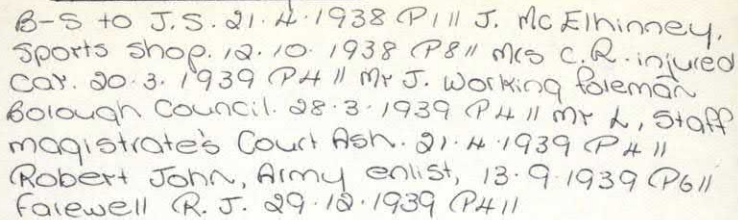 B-S to J.S. 21.4.1938 (P1 // J. McElhinney,
Sports shop. 12.10.1938 (P8 // Mrs C.R. injured
Car. 20.3.1939 (P4 // Mr J. Working foreman
Borough Council. 28.3.1939 (P4 // Mr L, Staff
Magistrate's Court Ash. 21.4.1939 (P4 //
Robert John, Army enlist, 13.9.1939 (P6 //
Farewell R.J. 29.12.1939 (P4 //